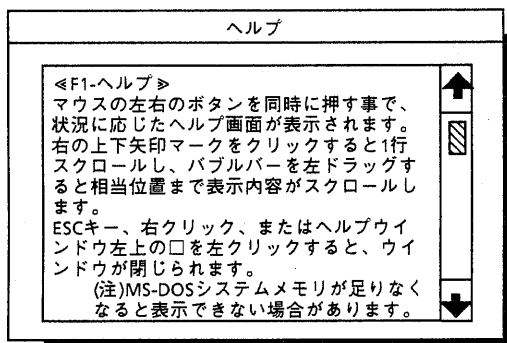 ヘルプ
≪F1-ヘルプ≫
マウスの左右のボタンを同時に押す事で、
状況に応じたヘルプ画面が表示されます。
右の上下矢印マークをクリックすると1行
スクロールし、バブルバーを左ドラッグす
ると相当位置まで表示内容がスクロールし
ます。
ESCキー、右クリック、またはヘルプウイ
ンドウ左上の□を左クリックすると、ウイ
ンドウが閉じられます。
(注)MS-DOSシステムメモリが足りなく
なると表示できない場合があります。